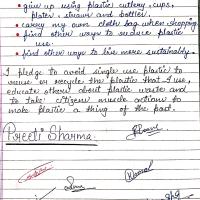 • give up using plastic cutlery, cups,
plates, straws and bottles.
• carry my own cloth bag when shopping
• find other ways to reduce plastic
use.
• find other ways to live more sustainably.
I pledge to avoid single use plastic to
reuse or recycle the plastic that I use,
educate others about plastic waste and
to take citizens muscle actions to
make plastic a thing of the past.
Preeti Sharma